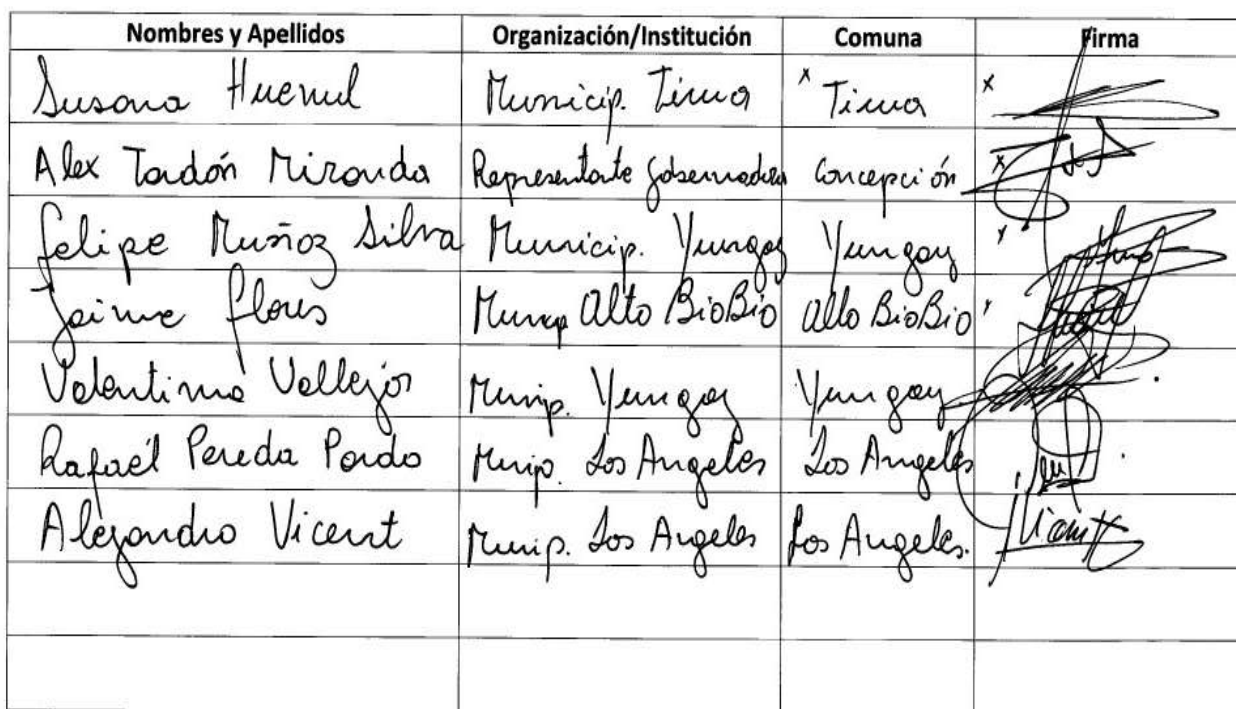 Nombres y Apellidos Organización/Institución Comuna Firma
Susana Huenul Municip. Tirua x Tirua x
Alex Tardón Miranda Representante Gobernadora Concepción x
Felipe Muñoz Silva Municip. Yungay Yungay x
Jaime Flores Municp Alto BioBio Alto BioBio x
Valentina Vallejos Munip. Yungay Yungay
Rafaél Pereda Pardo Munip. Los Angeles Los Angeles
Alejandro Vicent Munip. Los Angeles Los Angeles.